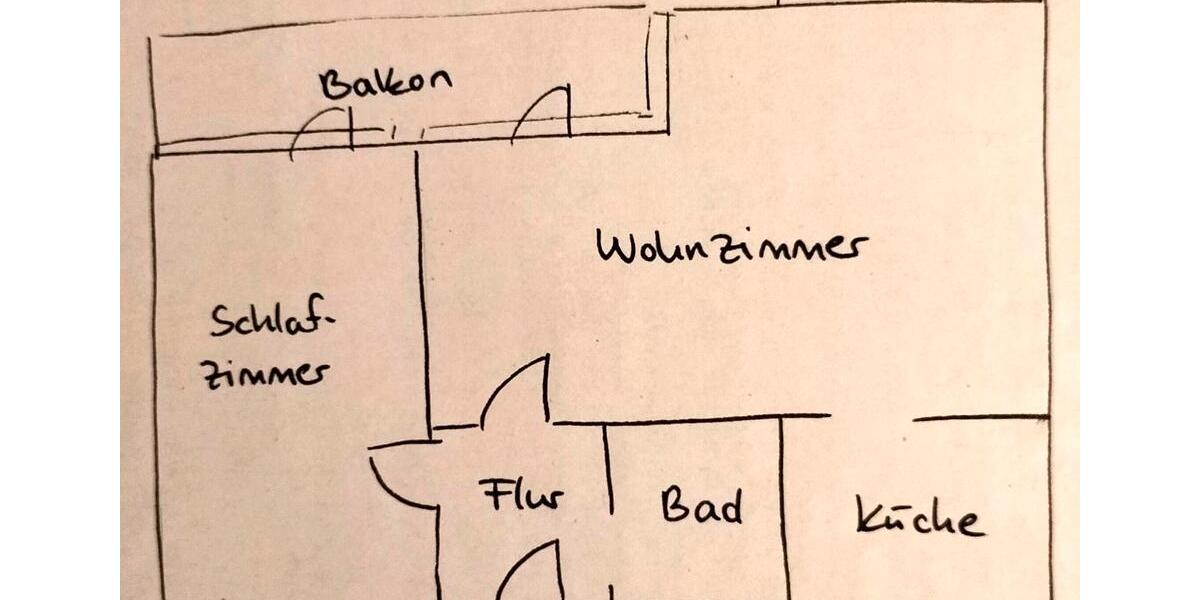 Balkon
Wohnzimmer
Schlaf-
zimmer
Flur
Bad
Küche